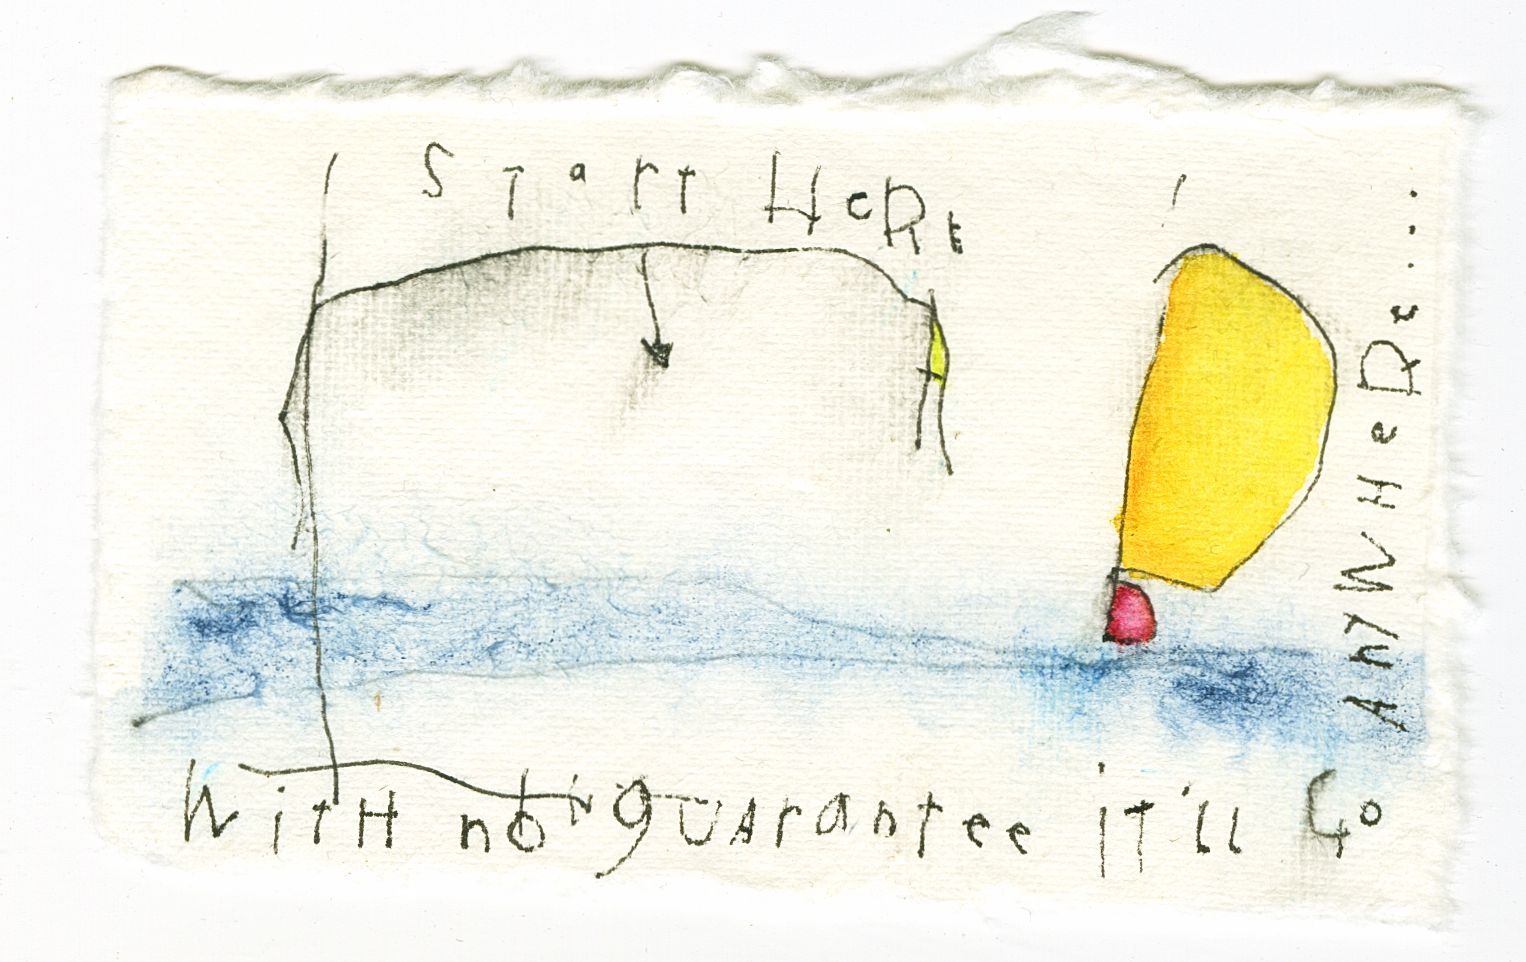 START HeRe
WitH no guarantee iT'll Go
AnyWHeRe...